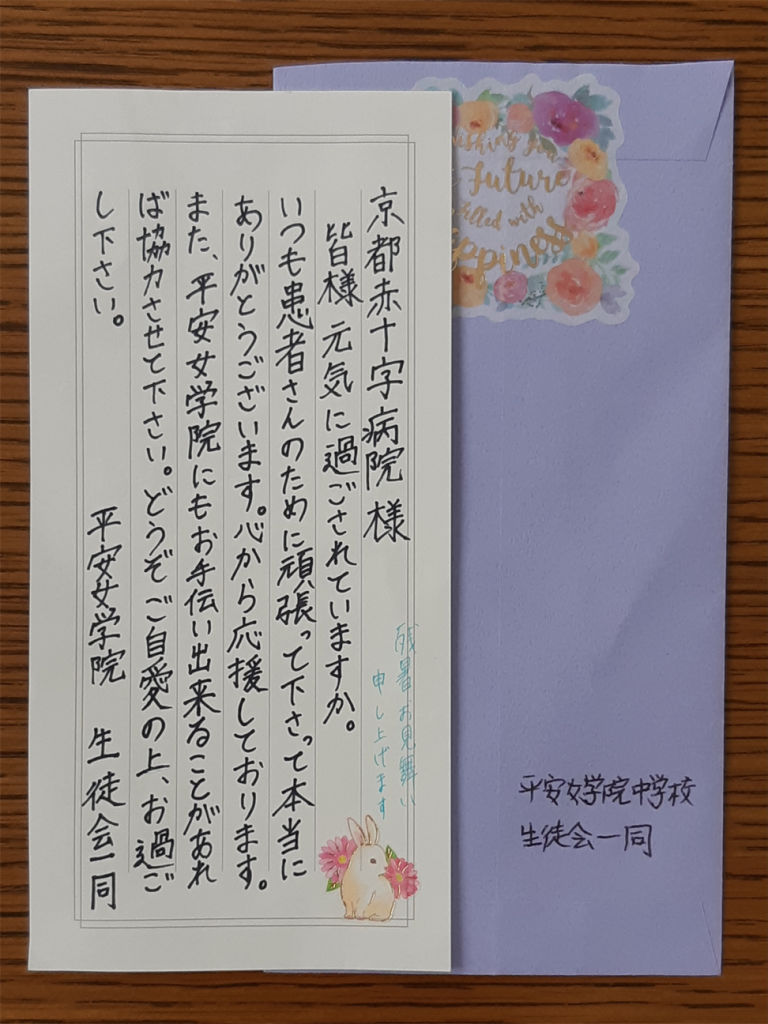 京都赤十字病院様
皆様元気に過ごされていますか。
いつも患者さんのために頑張って下さって本当に
ありがとうございます。心から応援しております。
また、平安女学院にもお手伝い出来ることがあれ
ば協力させて下さい。どうぞご自愛の上、お過ご
し下さい。
平安女学院 生徒会一同
残暑お見舞い
申し上げます
Future
filled with
平安女学院中学校
生徒会一同